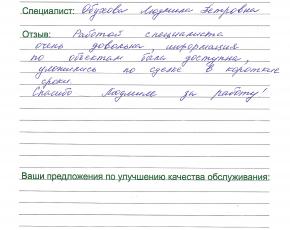 Специалист: Обухова Людмила Петровна
Отзыв: Работой специалиста
очень довольна, информация
по объектам была доступна,
уложились по сделке в короткие
сроки.
Спасибо Людмиле за работу!
Ваши предложения по улучшению качества обслуживания: